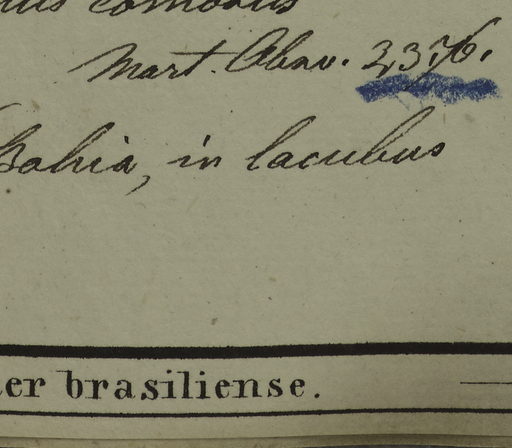 comosus
Mart. Obsv. 2376.
Bahia, in lacubus
er brasiliense.